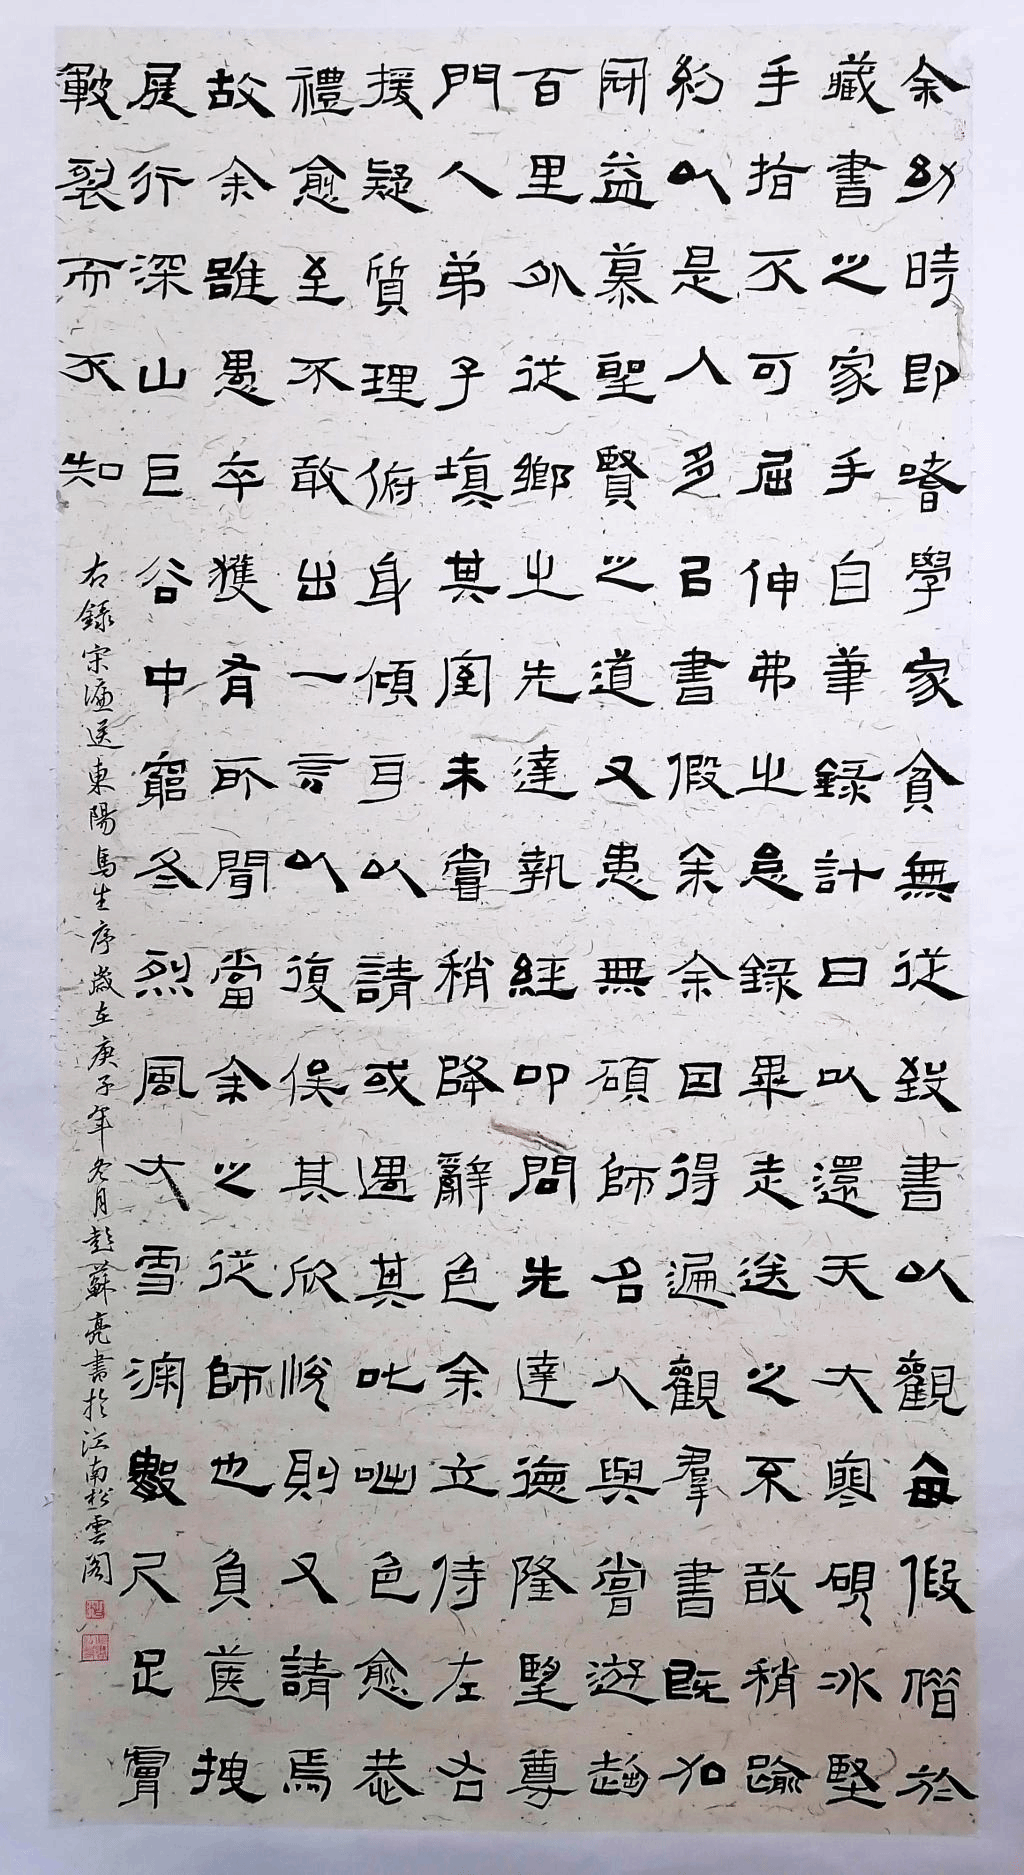 余幼時即嗜學家貧無從致書以觀每假借於
藏書之家手自筆錄計日以還天大寒硯冰堅
手指不可屈伸弗之怠錄畢走送之不敢稍踰
約以是人多以書假余余因得遍觀羣書既加
冠益慕聖賢之道又患無碩師名人與嘗遊趨
百里外從鄉之先達執經叩問先達德隆望尊
門人弟子填其室未嘗稍降辭色余立侍左右
援疑質理俯身傾耳以請或遇其叱咄色愈恭
禮愈至不敢出一言以復俟其欣悅則又請焉
故余雖愚卒獲有所聞當余之從師也負篋拽
屣行深山巨谷中窮冬烈風大雪深數尺足膚
皸裂而不知
右錄宋濂送東陽馬生序歲在庚子年冬月彭蘇亮書於江南松雲閣